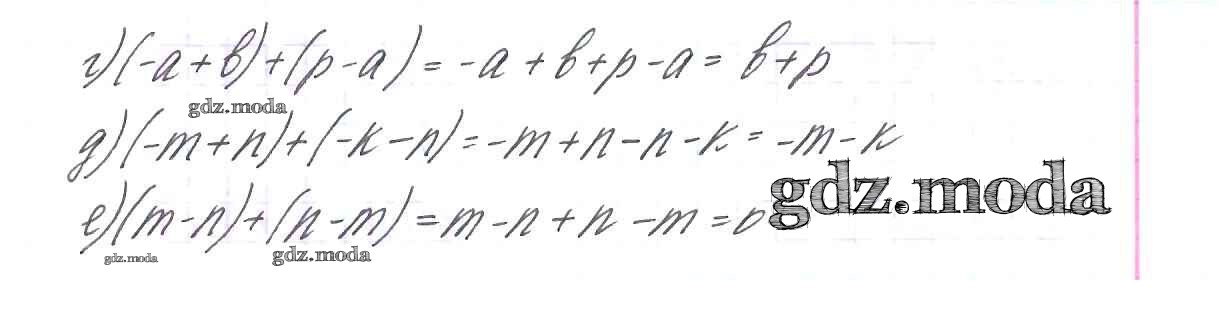 г) (-a + b) + (p - a) = -a + b + p - a = b + p
gdz.moda
д) (-m + n) + (-k - n) = -m + n - n - k = -m - k
gdz.moda
е) (m - n) + (n - m) = m - n + n - m = 0
gdz.moda gdz.moda